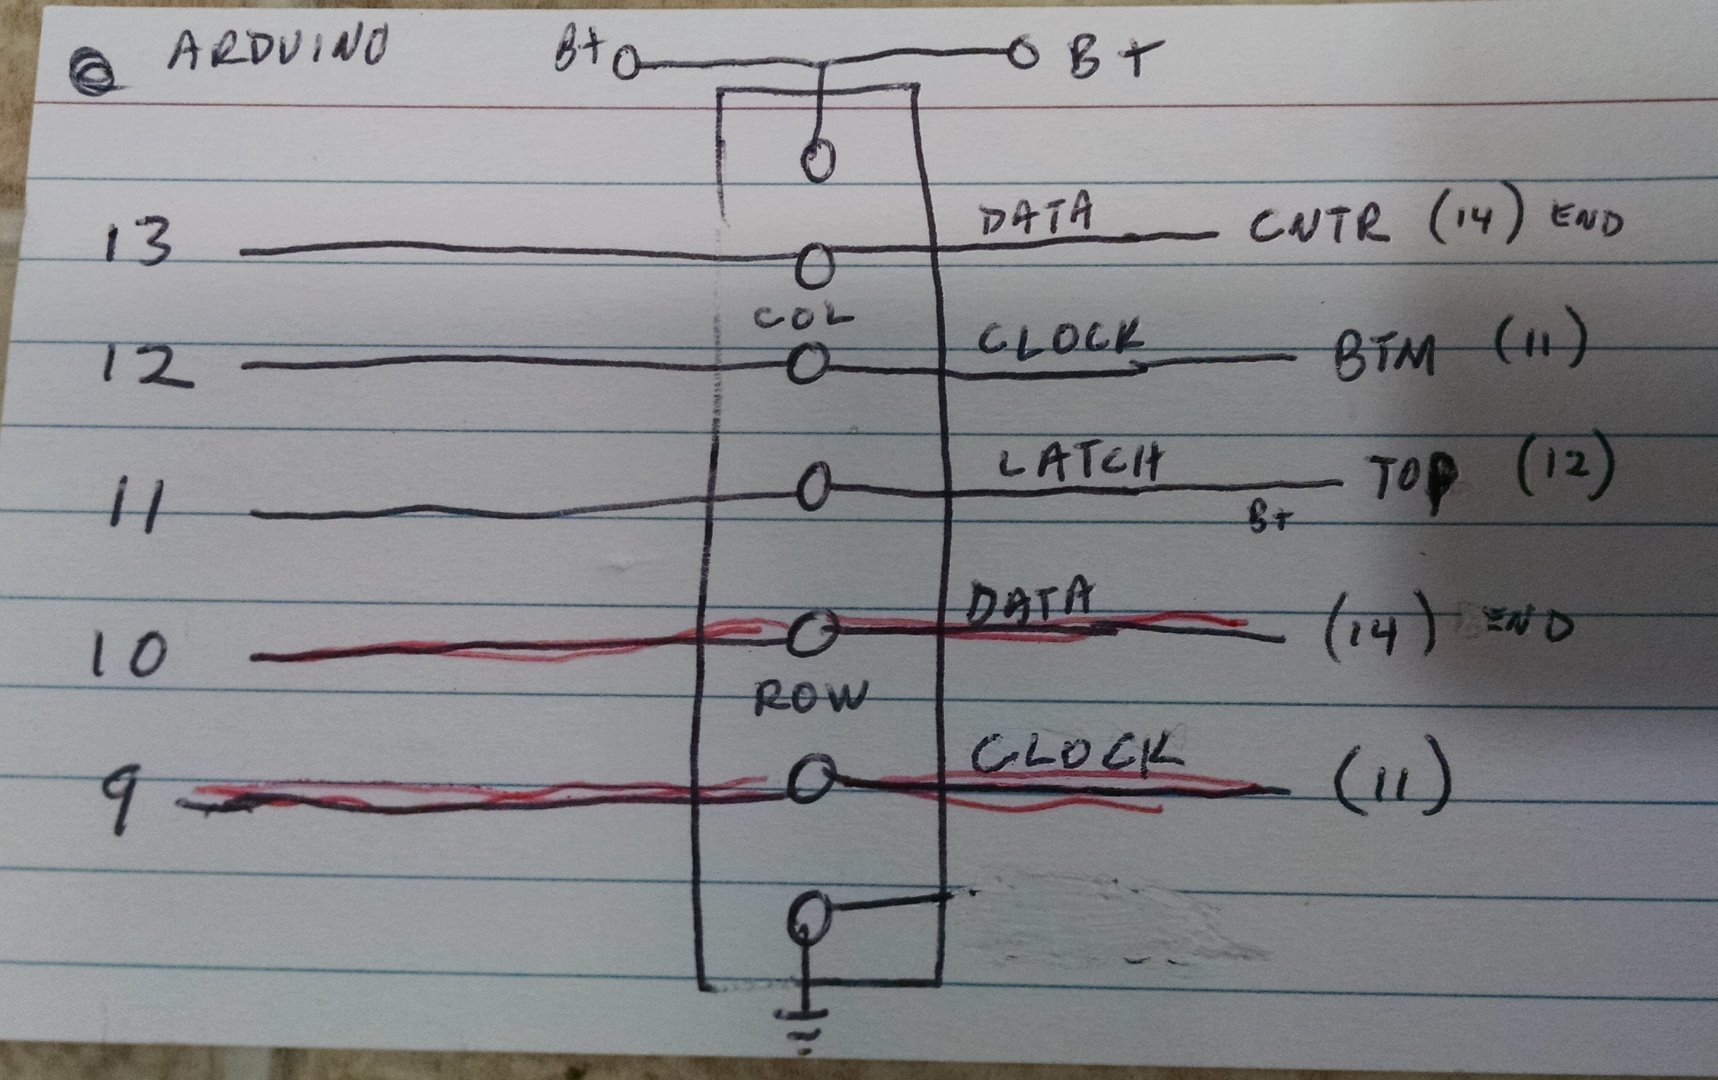 ARDUINO B+ B+
13 DATA CNTR (14) END
COL
12 CLOCK BTM (11)
11 LATCH TOP (12)
B+
10 DATA (14) END
ROW
9 CLOCK (11)